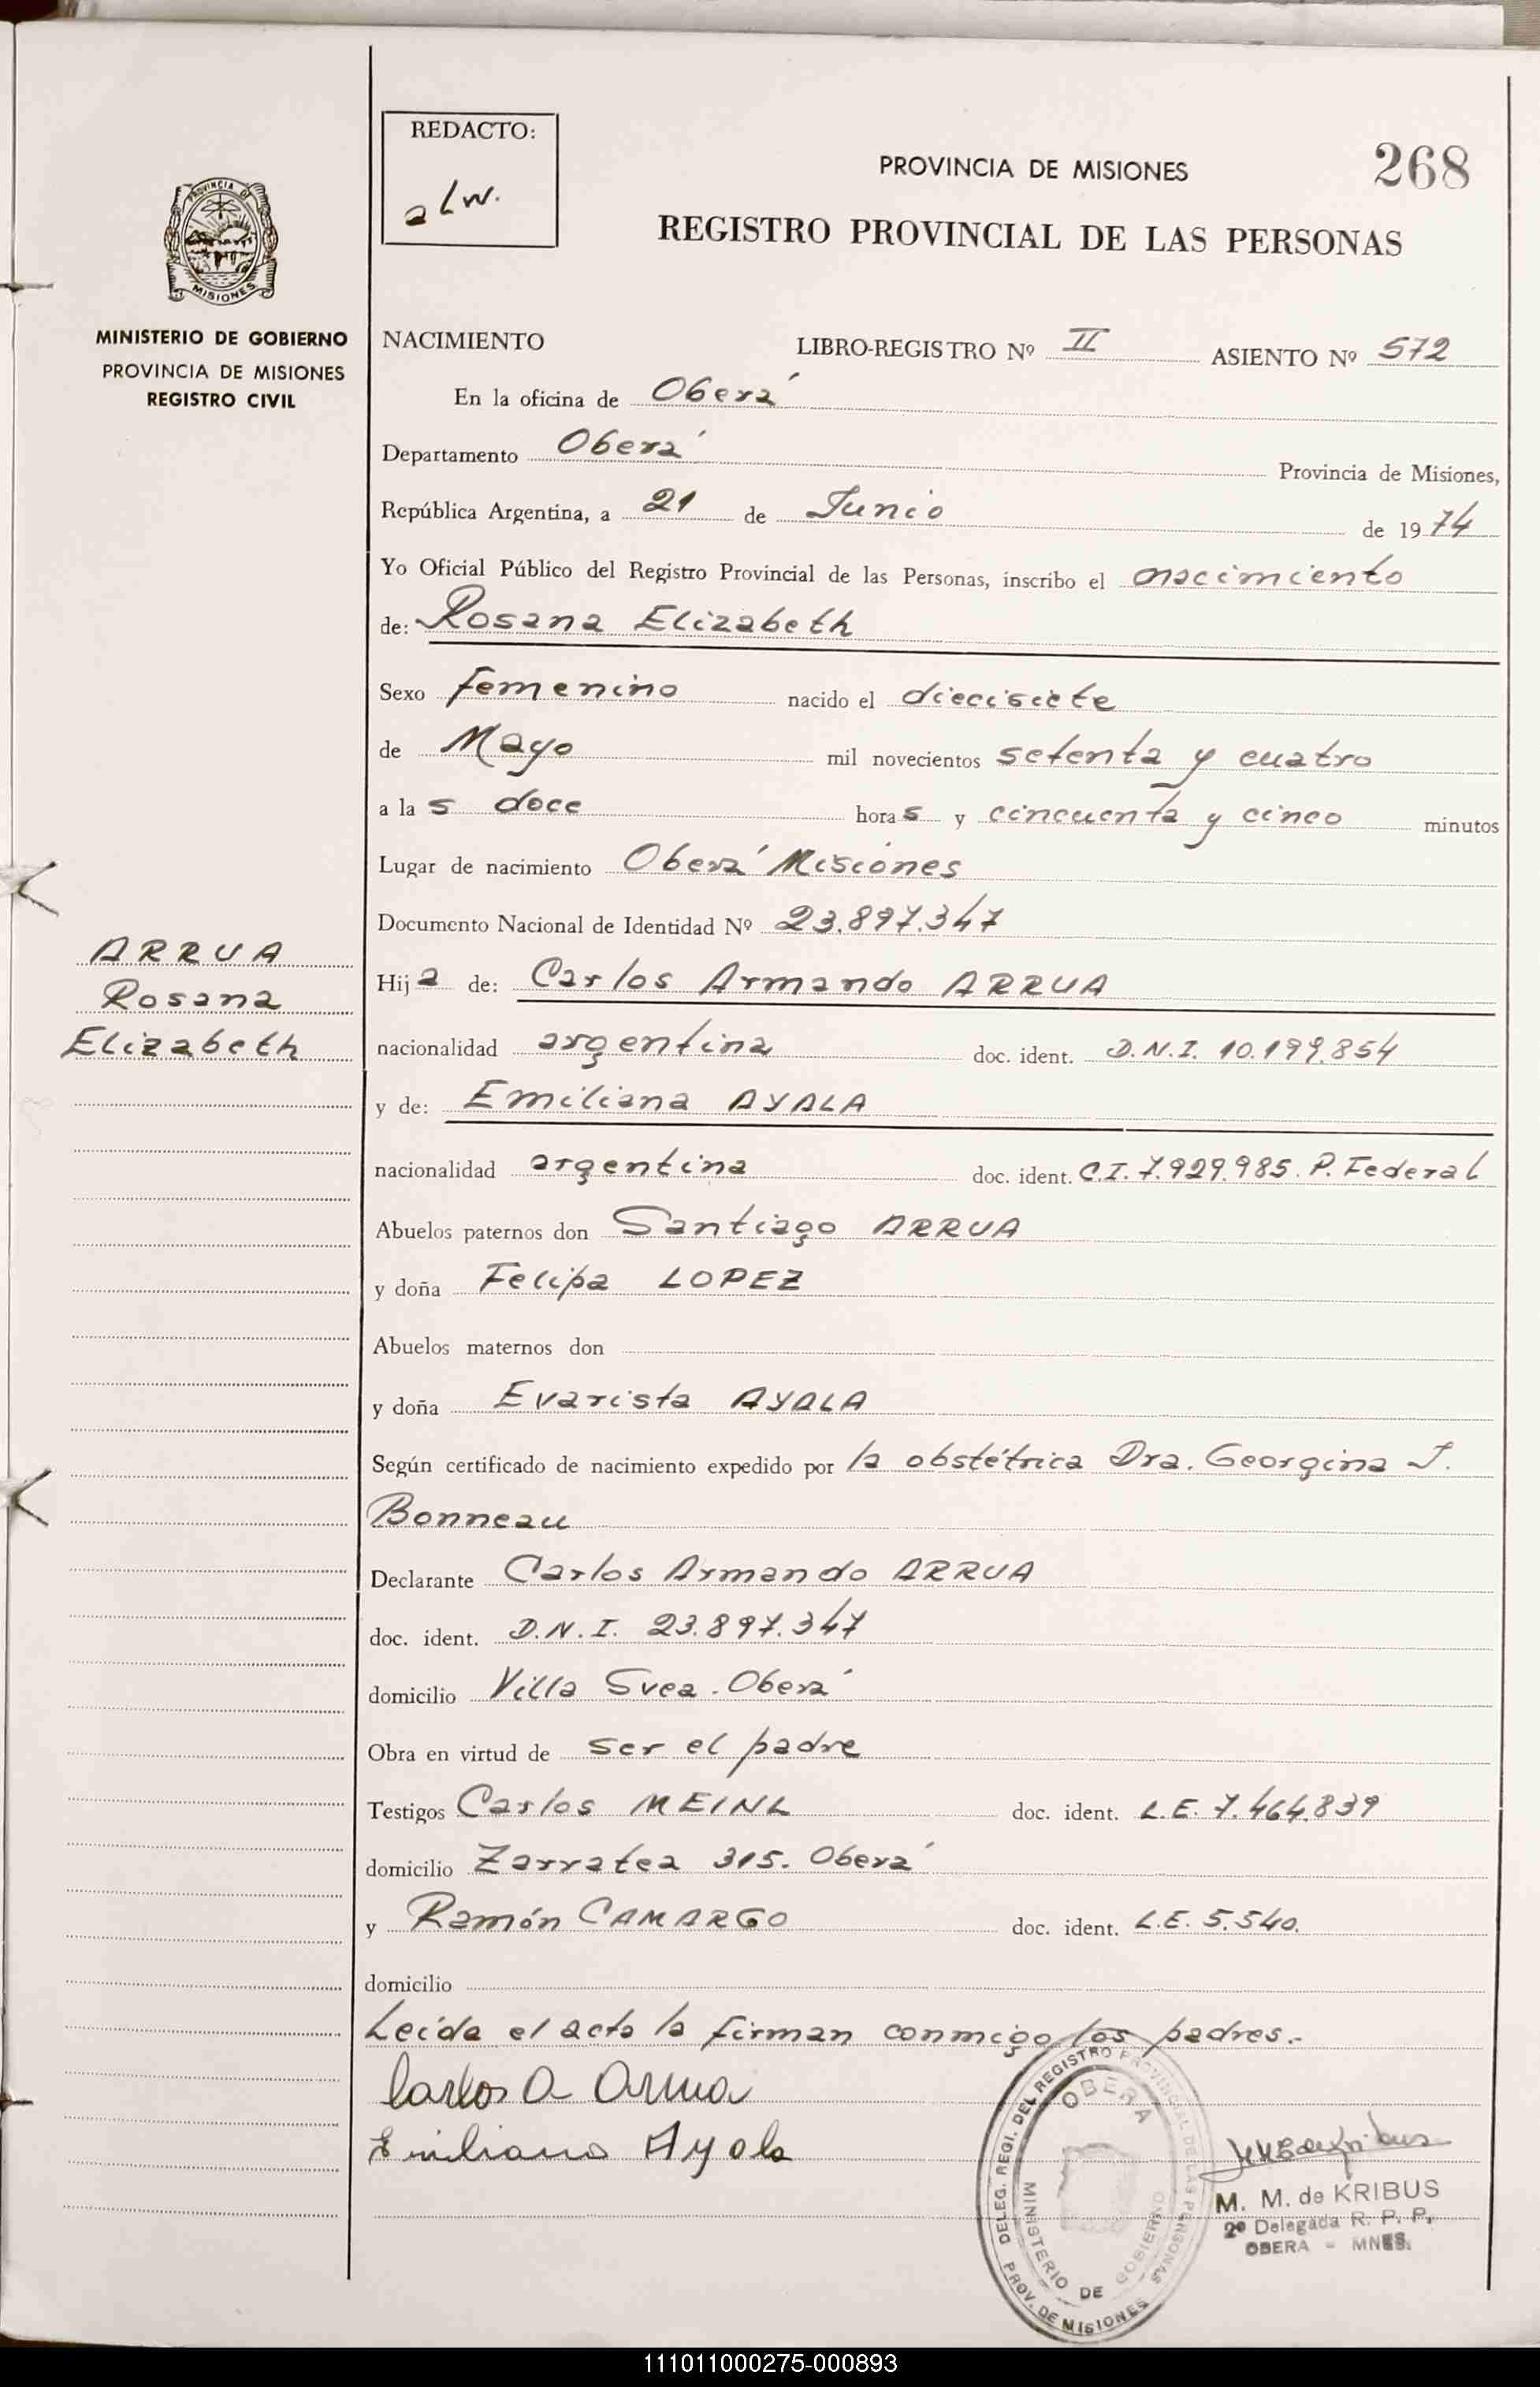 REDACTO:
aLW.
PROVINCIA DE MISIONES
268
REGISTRO PROVINCIAL DE LAS PERSONAS
PROVINCIA DE
MISIONES
MINISTERIO DE GOBIERNO
PROVINCIA DE MISIONES
REGISTRO CIVIL
NACIMIENTO LIBRO-REGISTRO Nº II ASIENTO Nº 572
En la oficina de Oberá
Departamento Oberá Provincia de Misiones,
República Argentina, a 21 de Junio de 1974
Yo Oficial Público del Registro Provincial de las Personas, inscribo el nacimiento
de: Rosana Elizabeth
Sexo femenino nacido el diecisiete
de Mayo mil novecientos setenta y cuatro
a las doce horas y cincuenta y cinco minutos
Lugar de nacimiento Oberá Misiones
Documento Nacional de Identidad Nº 23.897.347
ARRUA
Rosana
Elizabeth
Hija de: Carlos Armando ARRUA
nacionalidad argentina doc. ident. D.N.I. 10.199.854
y de: Emiliana AYALA
nacionalidad argentina doc. ident. C.I. 7.929.985. P. Federal
Abuelos paternos don Santiago ARRUA
y doña Felipa LOPEZ
Abuelos maternos don
y doña Evarista AYALA
Según certificado de nacimiento expedido por la obstétrica Dra. Georgina J.
Bonneau
Declarante Carlos Armando ARRUA
doc. ident. D.N.I. 23.897.347
domicilio Villa Svea. Oberá
Obra en virtud de ser el padre
Testigos Carlos MEINL doc. ident. L.E. 7.464.839
domicilio Zarratea 315. Oberá
y Ramón CAMARGO doc. ident. L.E. 5.540.
domicilio
Leída el acta la firman conmigo los padres.-
Carlos A Arrua
Emiliana Ayala
DELEG. REGI. DEL REGISTRO PROVINCIAL DE LAS PERSONAS
OBERA
MINISTERIO DE GOBIERNO
PROV. DE MISIONES
M. M. de KRIBUS
2ª Delegada R. P. P.
OBERA - MNES.
111011000275-000893